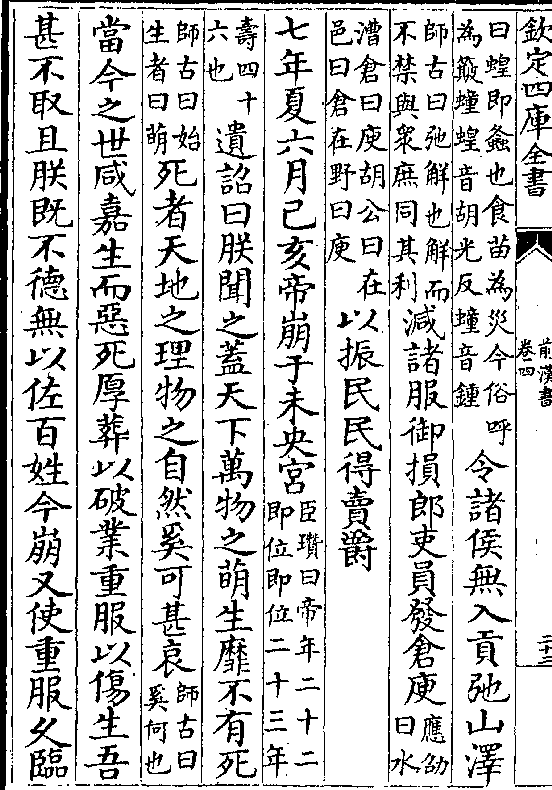 欽定四庫全書
前漢書
卷四
二十三
曰蝗即螽也食苗為災今俗呼
為簸蝩蝗音胡光反蝩音鍾
令諸侯無入貢弛山澤
師古曰弛解也解而
不禁與衆庶同其利
減諸服御損郎吏員發倉庾
應劭
曰水
漕倉曰庾胡公曰在
邑曰倉在野曰庾
以振民民得賣爵
七年夏六月己亥帝崩于未央宮
臣瓚曰帝年二十二
即位即位二十三年
壽四十
六也
遺詔曰朕聞之蓋天下萬物之萌生靡不有死
師古曰始
生者曰萌
死者天地之理物之自然奚可甚哀
師古曰
奚何也
當今之世咸嘉生而惡死厚葬以破業重服以傷生吾
甚不取且朕既不德無以佐百姓今崩又使重服久臨